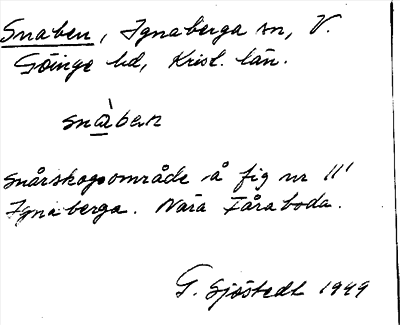 Snaben, Ignaberga sn, V.
Göinge hd, Krist. län.
snàben
Snårskogsområde å fig nr 1''
Ignaberga. Nära Fåraboda.
G. Sjöstedt 1949